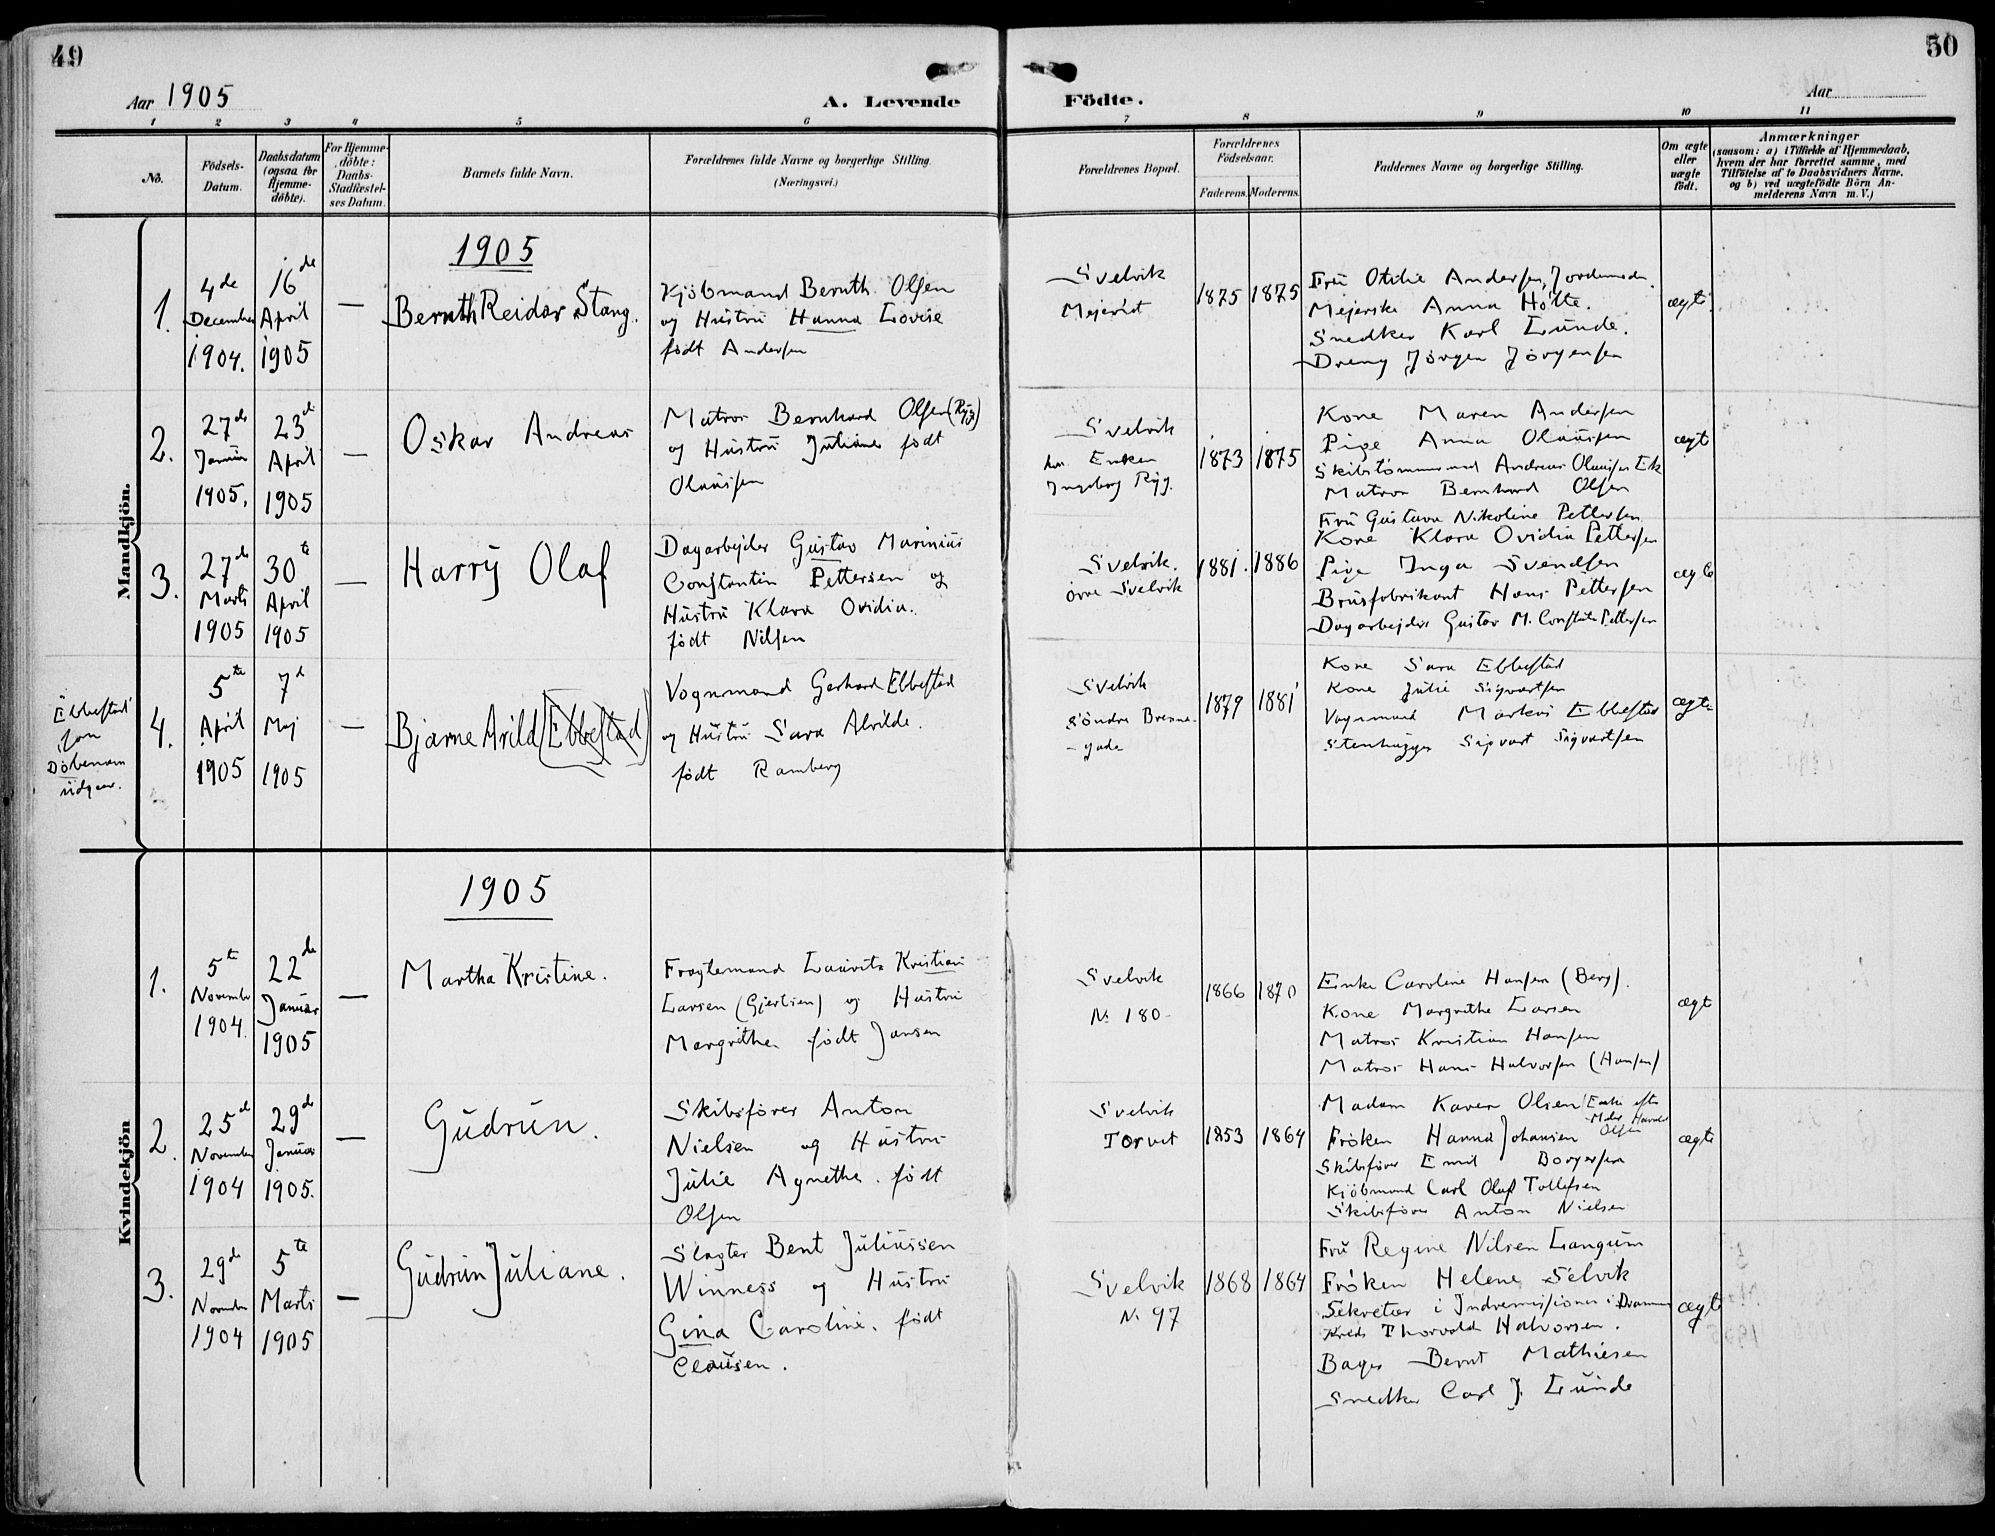 49
50
Aar 1905
A. Levende Födte.
Aar
1 2 3 4 5 6 7 8 9 10 11
No.
Födsels-Datum.
Daabsdatum (ogsaa for Hjemme-döbte).
For Hjemme-döbte: Daabs-Stadfæstel-ses Datum.
Barnets fulde Navn.
Forældrenes fulde Navne og borgerlige Stilling.
(Næringsvei.)
Forældrenes Bopæl.
Forældrenes Födselsaar.
Faderens. Moderens.
Faddernes Navne og borgerlige Stilling.
Om ægte eller uægte födt.
Anmærkninger
(saasom: a) i Tilfælde af Hjemmedaab,
hvem der har forrettet samme, med
Tilföielse af to Daabsvidners Navne,
og b) ved uægtefödte Börn An-
melderens Navn m. V.)
Mandkjön.
1905
1.
4de
December
1904.
16de
April
1905
—
Bernth Reidar Stang.
Kjöbmand Bernth Olsen
og Hustru Hanna Lovise
födt Andersen
Svelvik
Mejeriet
1875
1875
Fru Otilie Andersen, Jordemoder.
Mejerske Anna Holte.
Snedker Karl Lunde.
Dreng Jörgen Jörgensen
ægte
2.
27de
Januar
1905.
23de
April
1905
—
Oskar Andreas
Matros Bernhard Olsen (Ryg)
og Hustru Juliane födt
Olaussen
Svelvik
hos Enken
Ingeborg Ryg.
1873
1875
Kone Maren Andersen
Pige Anna Olaussen
Skibstömmermand Andreas Olaussen Ek
Matros Bernhard Olsen
ægte
3.
27de
Marts
1905
30te
April
1905
—
Harry Olaf
Dagarbejder Gustav Marinius
Constantin Pettersen og
Hustru Klara Ovidia.
födt Nilsen
Svelvik.
övre Svelvik
1881.
1886
Fru Gustava Nikoline Pettersen
Kone Klara Ovidia Pettersen
Pige Inga Svendsen
Brusfabrikant Hans Pettersen
Dagarbejder Gustav M. Constantin Pettersen
ægte
Ebbestad
som
Döbenavn
udgaar.
4.
5te
April
1905
7de
Maj
1905
—
Bjarne Arild [Ebbestad]
Vognmand Gerhard Ebbestad
og Hustru Sara Alvilde.
födt Ramberg
Svelvik
Söndre Brenne-
gade
1879
1881
Kone Sara Ebbestad
Kone Julie Sigvartsen
Vognmand Markus Ebbestad
Stenhugger Sigvart Sigvartsen
ægte
Kvindekjön
1905
1.
5te
November
1904
22de
Januar
1905
—
Martha Kristine.
Fragtemand Lauritz Kristian
Larsen (Gjertsen) og Hustru
Margrethe. födt Jansen
Svelvik
No 180
1866
1870
Enke Caroline Hansen (Berg).
Kone Margrethe Larsen
Matros Kristian Hansen
Matros Hans Halvorsen (Hansen)
ægte
2.
25de
November
1904
29de
Januar
1905.
—
Gudrun.
Skibsförer Anton
Nielsen og Hustru
Julie Agnethe. födt
Olsen
Svelvik
Torvet
1853
1864
Madam Karen Olsen (Enke efter
Harald
Olsen
Fröken Hanna Johansen
Skibsförer Emil Borgersen
Kjöbmand Carl Olaf Tollefsen
Skibsförer Anton Nielsen
ægte
3.
29de
November
1904
5te
Marts
1905
—
Gudrun Juliane.
Slagter Bent Juliussen
Winness og Hustru
Gina Caroline. födt
Clausen.
Svelvik
No 97
1868
1864
Fru Regine Nilsen Langum
Fröken Helene Selvik
Sekretær i Indremissionen i Drammens
Kreds Thorvald Halvorsen.
Bager Bernt Mathiesen
Snedker Carl J. Lunde
ægte